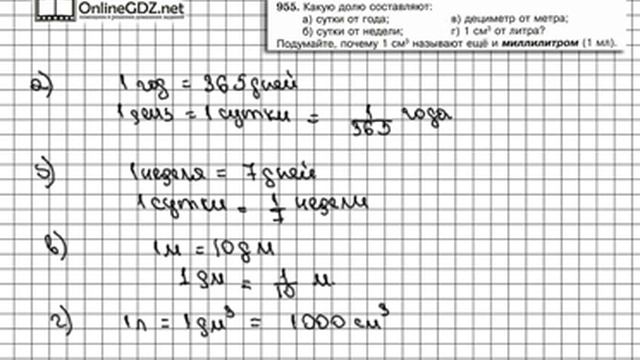 OnlineGDZ.net
955. Какую долю составляют:
а) сутки от года; в) дециметр от метра;
б) сутки от недели; г) 1 см³ от литра?
Подумайте, почему 1 см³ называют ещё и миллилитром (1 мл).
а) 1 год = 365 дней
1 день = 1 сутки = 1/365 года
б) 1 неделя = 7 дней
1 сутки = 1/7 недели
в) 1 м = 10 дм
1 дм = 1/10 м.
г) 1 л = 1 дм³ = 1000 см³